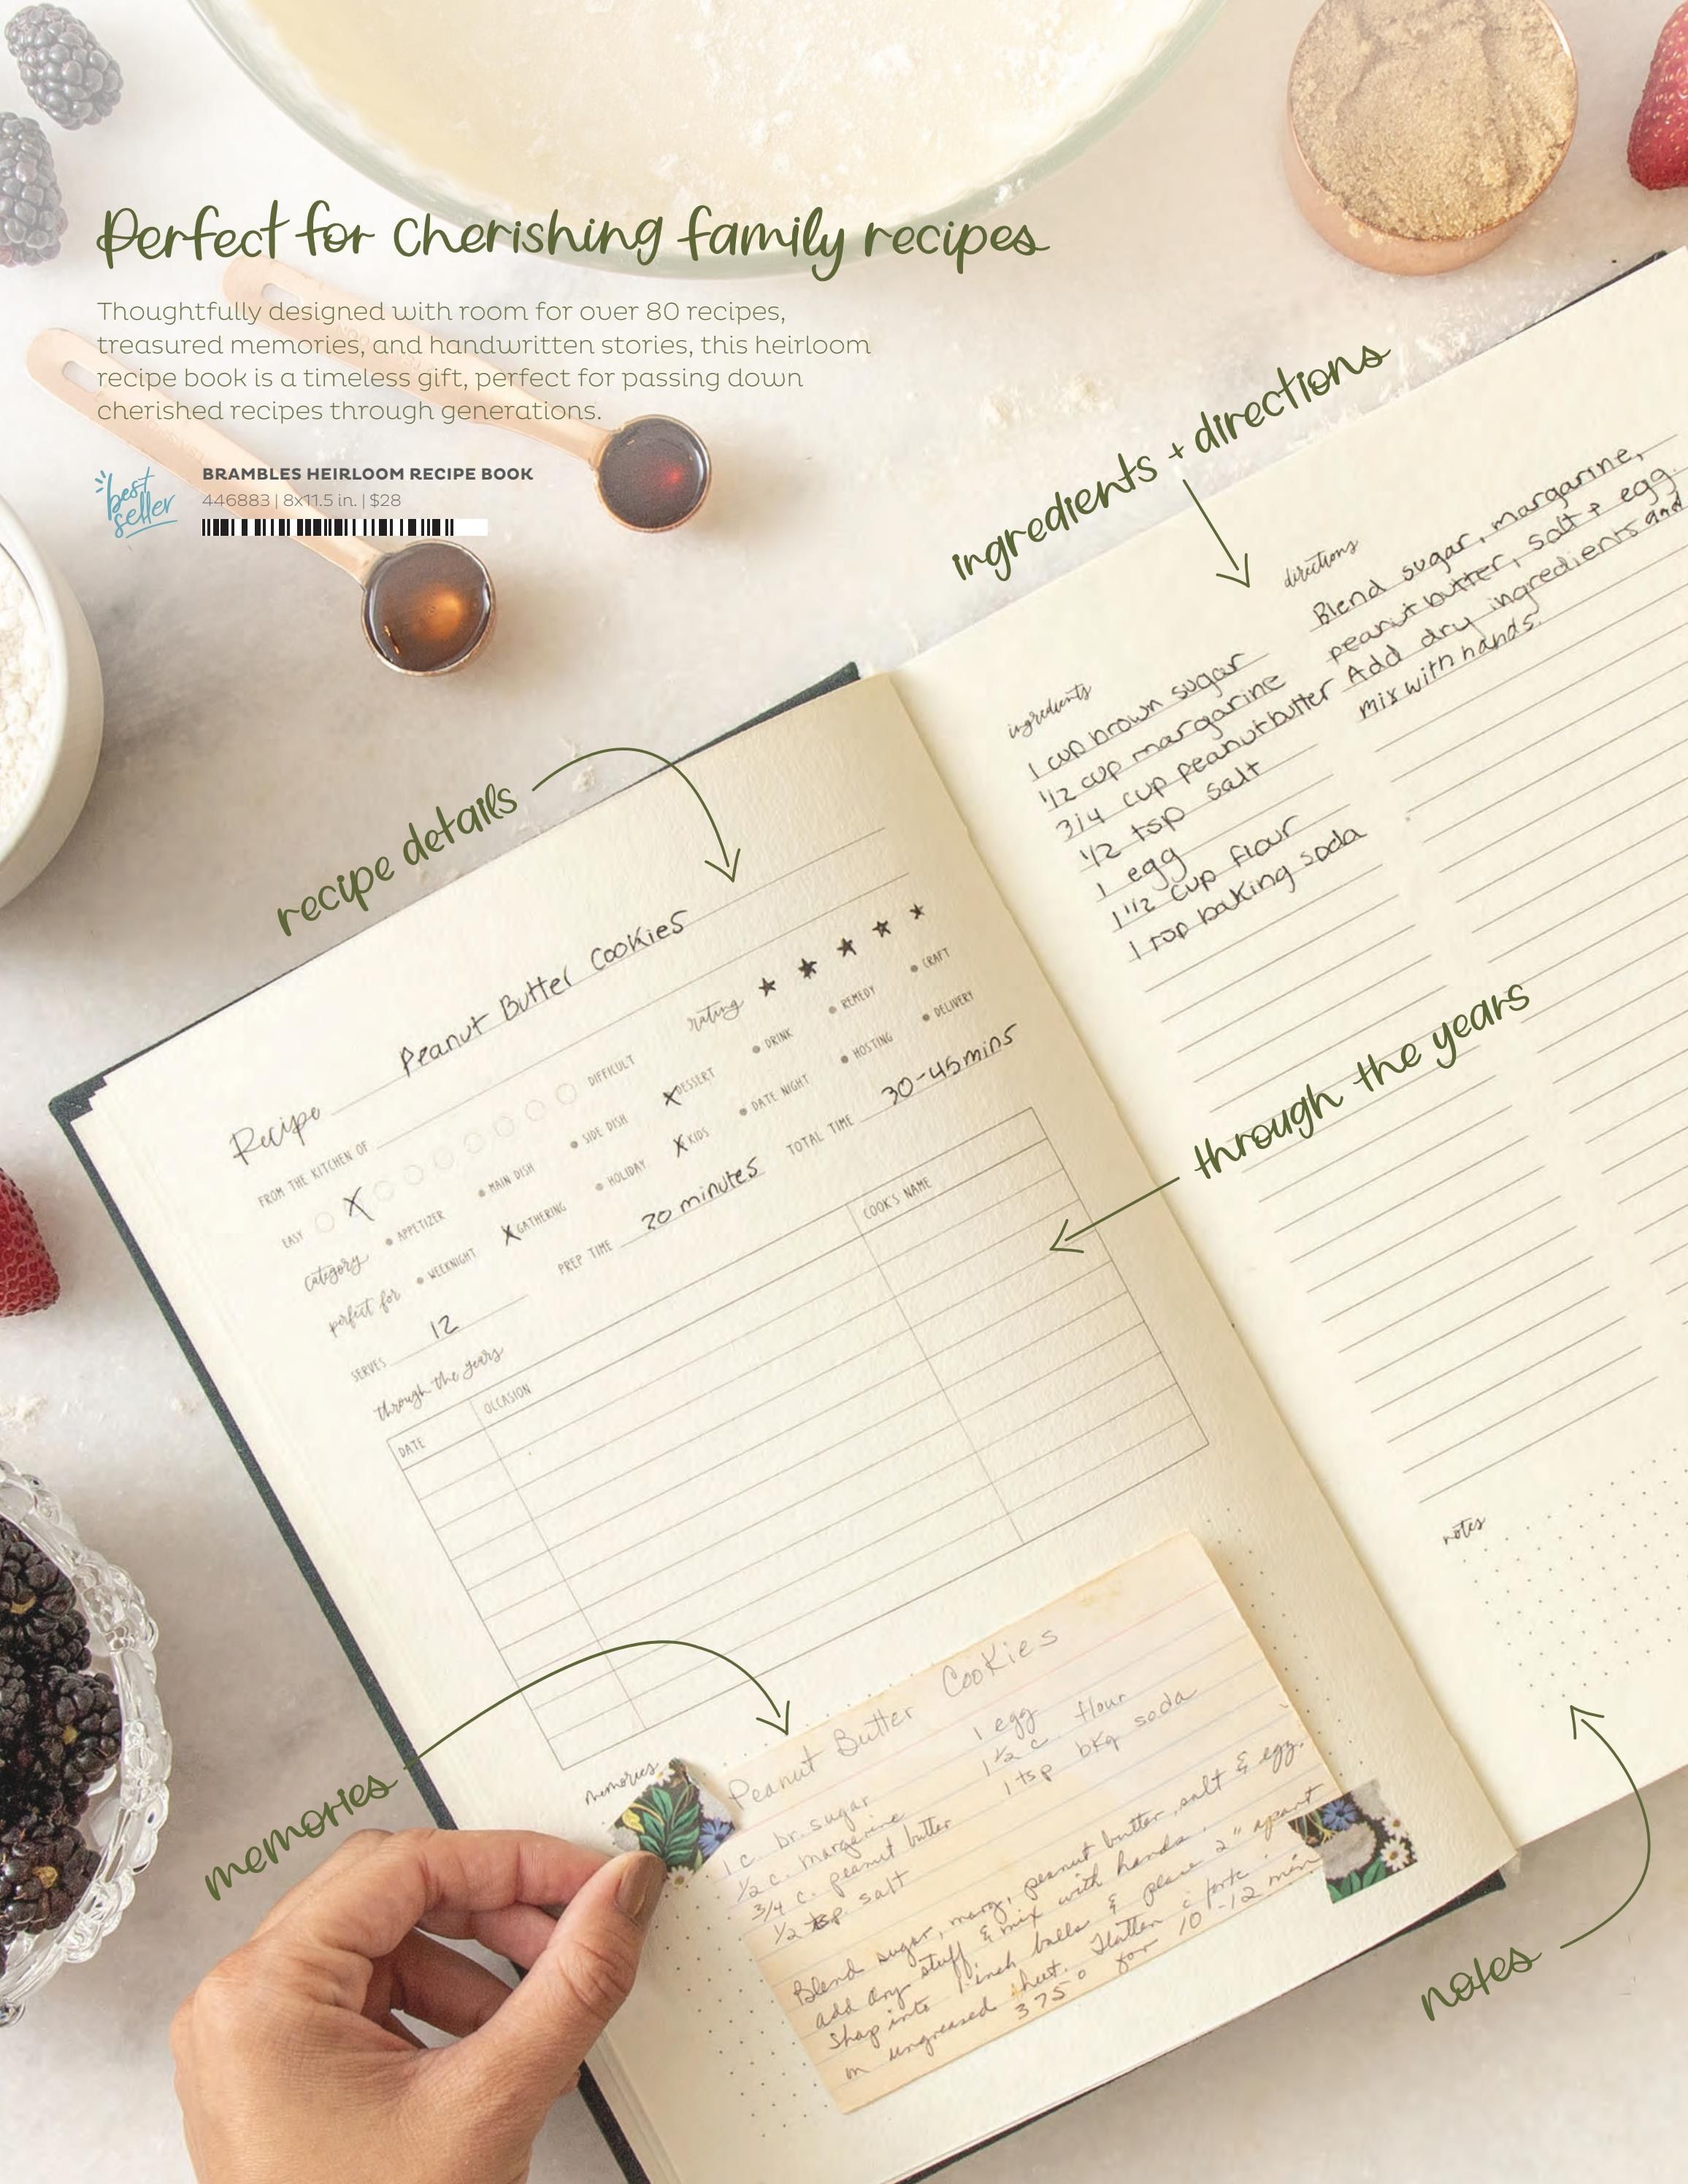 Perfect for cherishing family recipes
Thoughtfully designed with room for over 80 recipes,
treasured memories, and handwritten stories, this heirloom
recipe book is a timeless gift, perfect for passing down
cherished recipes through generations.
best
seller
BRAMBLES HEIRLOOM RECIPE BOOK
446883 | 8x11.5 in. | $28
ingredients + directions
recipe details
through the years
memories
notes
Recipe Peanut Butter Cookies
FROM THE KITCHEN OF
EASY X DIFFICULT
rating
category
APPETIZER
MAIN DISH
SIDE DISH
X DESSERT
DRINK
REMEDY
CRAFT
perfect for
WEEKNIGHT
X GATHERING
HOLIDAY
X KIDS
DATE NIGHT
HOSTING
DELIVERY
SERVES 12
PREP TIME 20 minutes
TOTAL TIME 30-45 mins
through the years
DATE
OCCASION
COOK'S NAME
memories
Peanut Butter Cookies
1 c. br. sugar
1/2 c. margarine
3/4 c. peanut butter
1/2 tsp. salt
1 egg
1 1/2 c flour
1 tsp bkg soda
Blend sugar, marg, peanut butter, salt & egg.
add dry stuff & mix with hands.
Shap into 1 inch balls & place 2" apart
on ungreased sheet. Flatten c fork.
375° for 10-12 min
ingredients
1 cup brown sugar
1/2 cup margarine
3/4 cup peanut butter
1/2 tsp salt
1 egg
1 1/2 cup flour
1 tsp baking soda
directions
Blend sugar, margarine,
peanut butter, salt + egg.
Add dry ingredients and
mix with hands.
notes